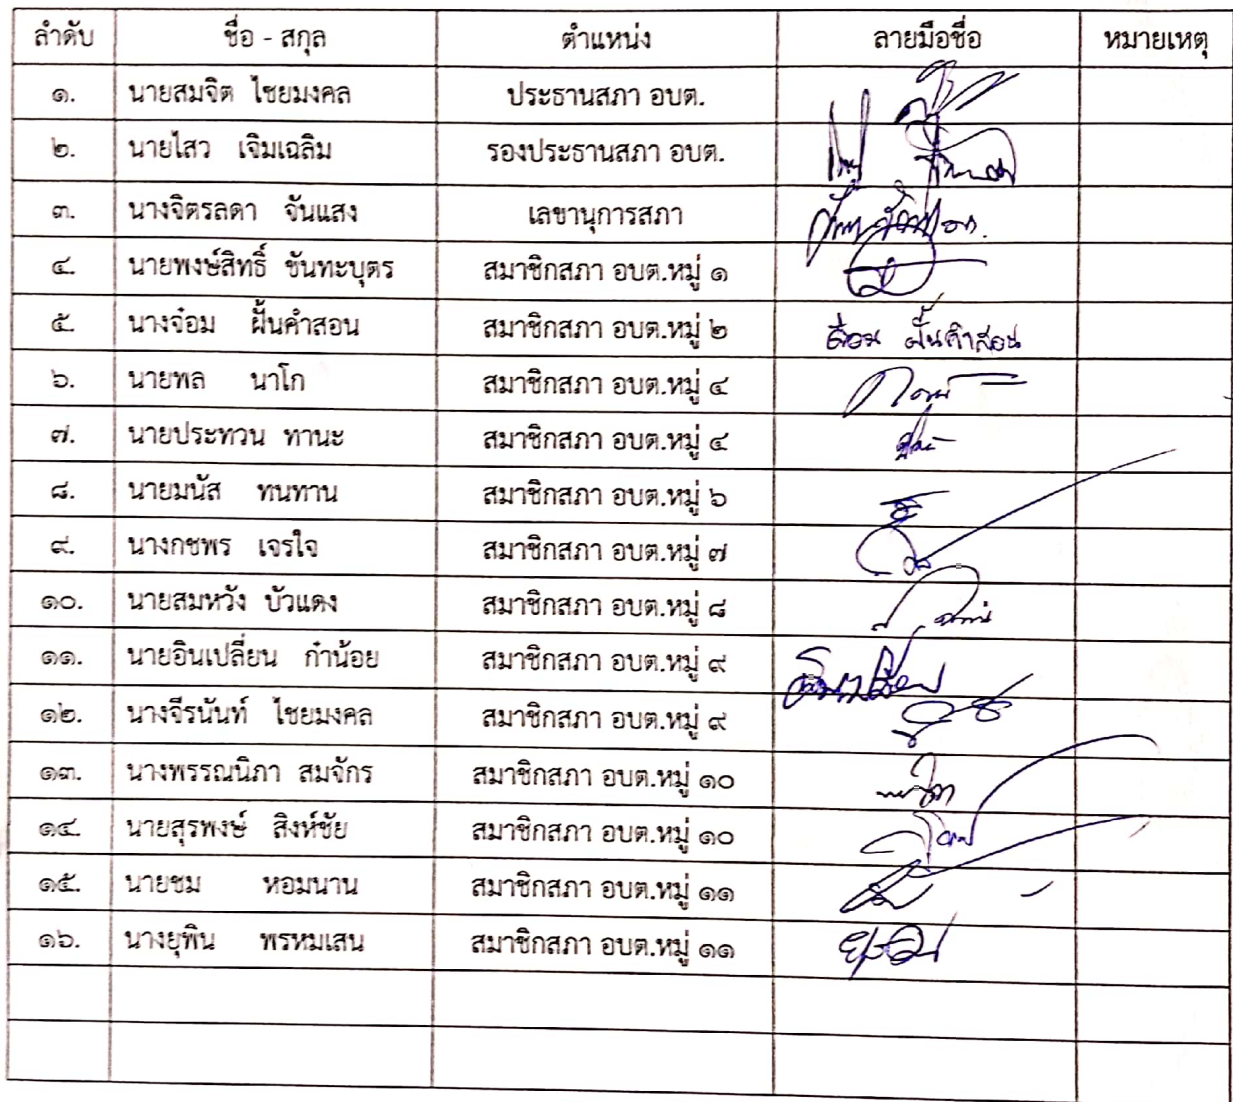 ลำดับ ชื่อ - สกุล ตำแหน่ง ลายมือชื่อ หมายเหตุ
๑. นายสมจิต ไชยมงคล ประธานสภา อบต.
๒. นายไสว เจิมเฉลิม รองประธานสภา อบต.
๓. นางจิตรลดา จันแสง เลขานุการสภา
๔. นายพงษ์สิทธิ์ ขันทะบุตร สมาชิกสภา อบต.หมู่ ๑
๕. นางจ๋อม ฝั้นคำสอน สมาชิกสภา อบต.หมู่ ๒ จ๋อม ฝั้นคำสอน
๖. นายพล นาโก สมาชิกสภา อบต.หมู่ ๔
๗. นายประทวน ทานะ สมาชิกสภา อบต.หมู่ ๔
๘. นายมนัส ทนทาน สมาชิกสภา อบต.หมู่ ๖
๙. นางกชพร เจรใจ สมาชิกสภา อบต.หมู่ ๗
๑๐. นายสมหวัง บัวแดง สมาชิกสภา อบต.หมู่ ๘
๑๑. นายอินเปลี่ยน ก๋าน้อย สมาชิกสภา อบต.หมู่ ๙ อินเปลี่ยน
๑๒. นางจีรนันท์ ไชยมงคล สมาชิกสภา อบต.หมู่ ๙
๑๓. นางพรรณนิภา สมจักร สมาชิกสภา อบต.หมู่ ๑๐
๑๔. นายสุรพงษ์ สิงห์ชัย สมาชิกสภา อบต.หมู่ ๑๐
๑๕. นายชม หอมนาน สมาชิกสภา อบต.หมู่ ๑๑
๑๖. นางยุพิน พรหมเสน สมาชิกสภา อบต.หมู่ ๑๑ ยุพิน